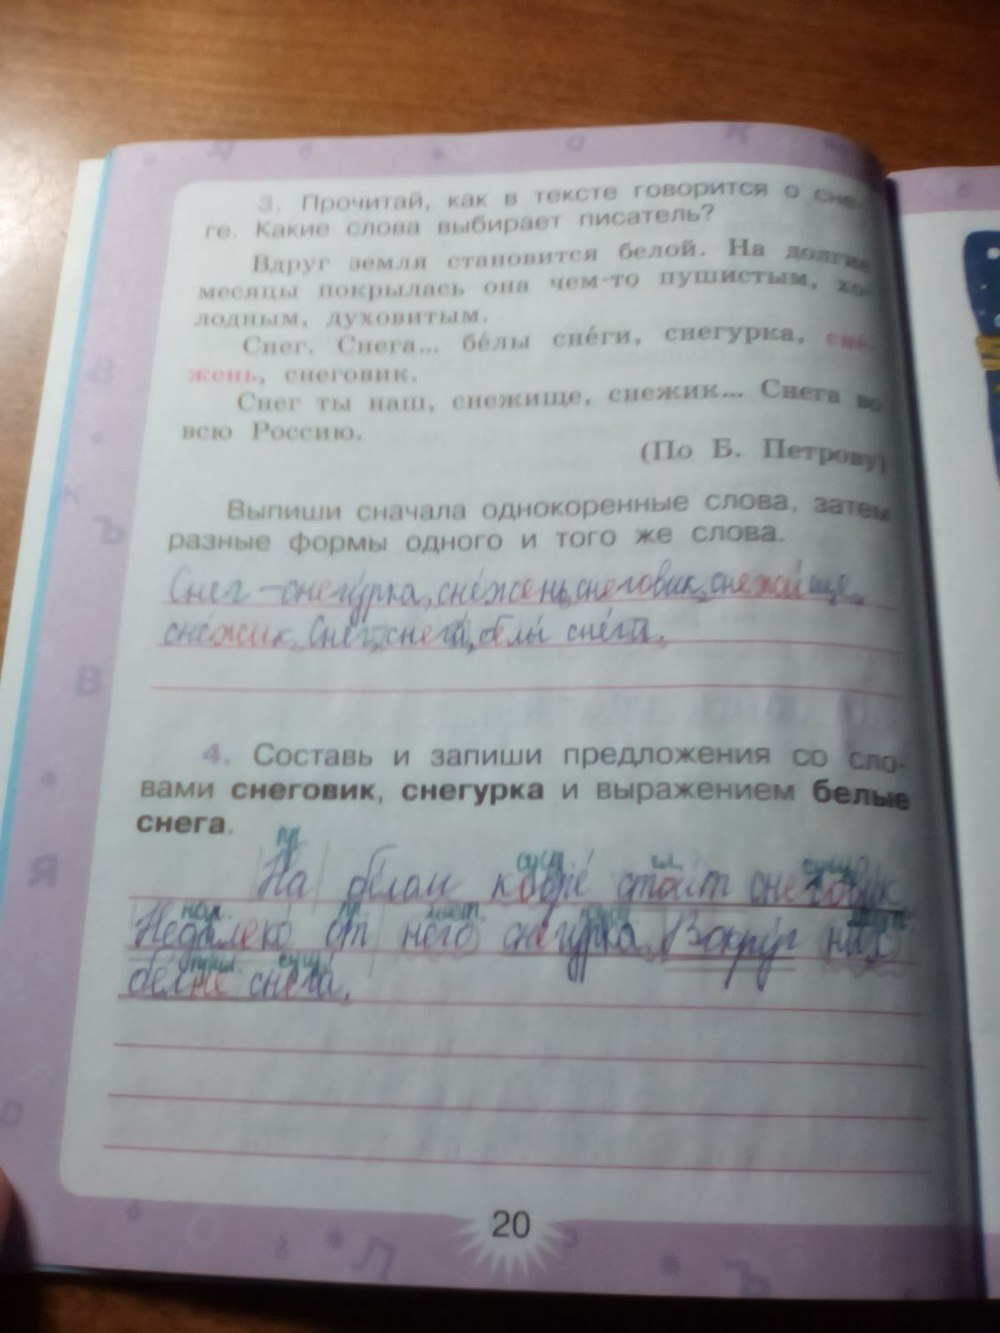 3. Прочитай, как в тексте говорится о сне-
ге. Какие слова выбирает писатель?
Вдруг земля становится белой. На долгие
месяцы покрылась она чем-то пушистым, хо-
лодным, духовитым.
Снег. Снега... бе́лы сне́ги, снегурка, сне́-
жень, снеговик.
Снег ты наш, снежище, снежик... Снега во
всю Россию.
(По Б. Петрову)
Выпиши сначала однокоренные слова, затем
разные формы одного и того же слова.
Снег – снегурка, снежень, снеговик, снежище,
снежик. Снег, снега, белы снега.
4. Составь и запиши предложения со сло-
вами снеговик, снегурка и выражением белые
снега.
пр.
сущ. гл. сущ.
На белом стоит снеговик.
нар. пр. мест.
Недалеко от него снегурка. Вокруг них
прил. сущ.
белые снега.
20